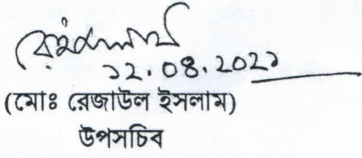 ১২.০৪.২০২১
(মোঃ রেজাউল ইসলাম)
উপসচিব